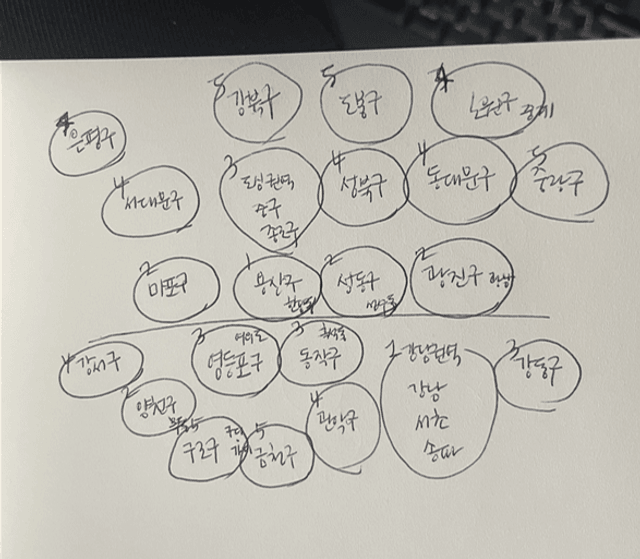 5 강북구
5 도봉구
4 노원구 중계
4 은평구
4 서대문구
3 도심권역
중구
종로구
4 성북구
4 동대문구
5 중랑구
2 마포구
1 용산구
2 성동구
2 광진구
4 강서구
3 여의도
영등포구
3 흑석동
동작구
1 강남권역
강남
서초
송파
3 강동구
2 양천구
5 구로구
5 금천구
4 관악구